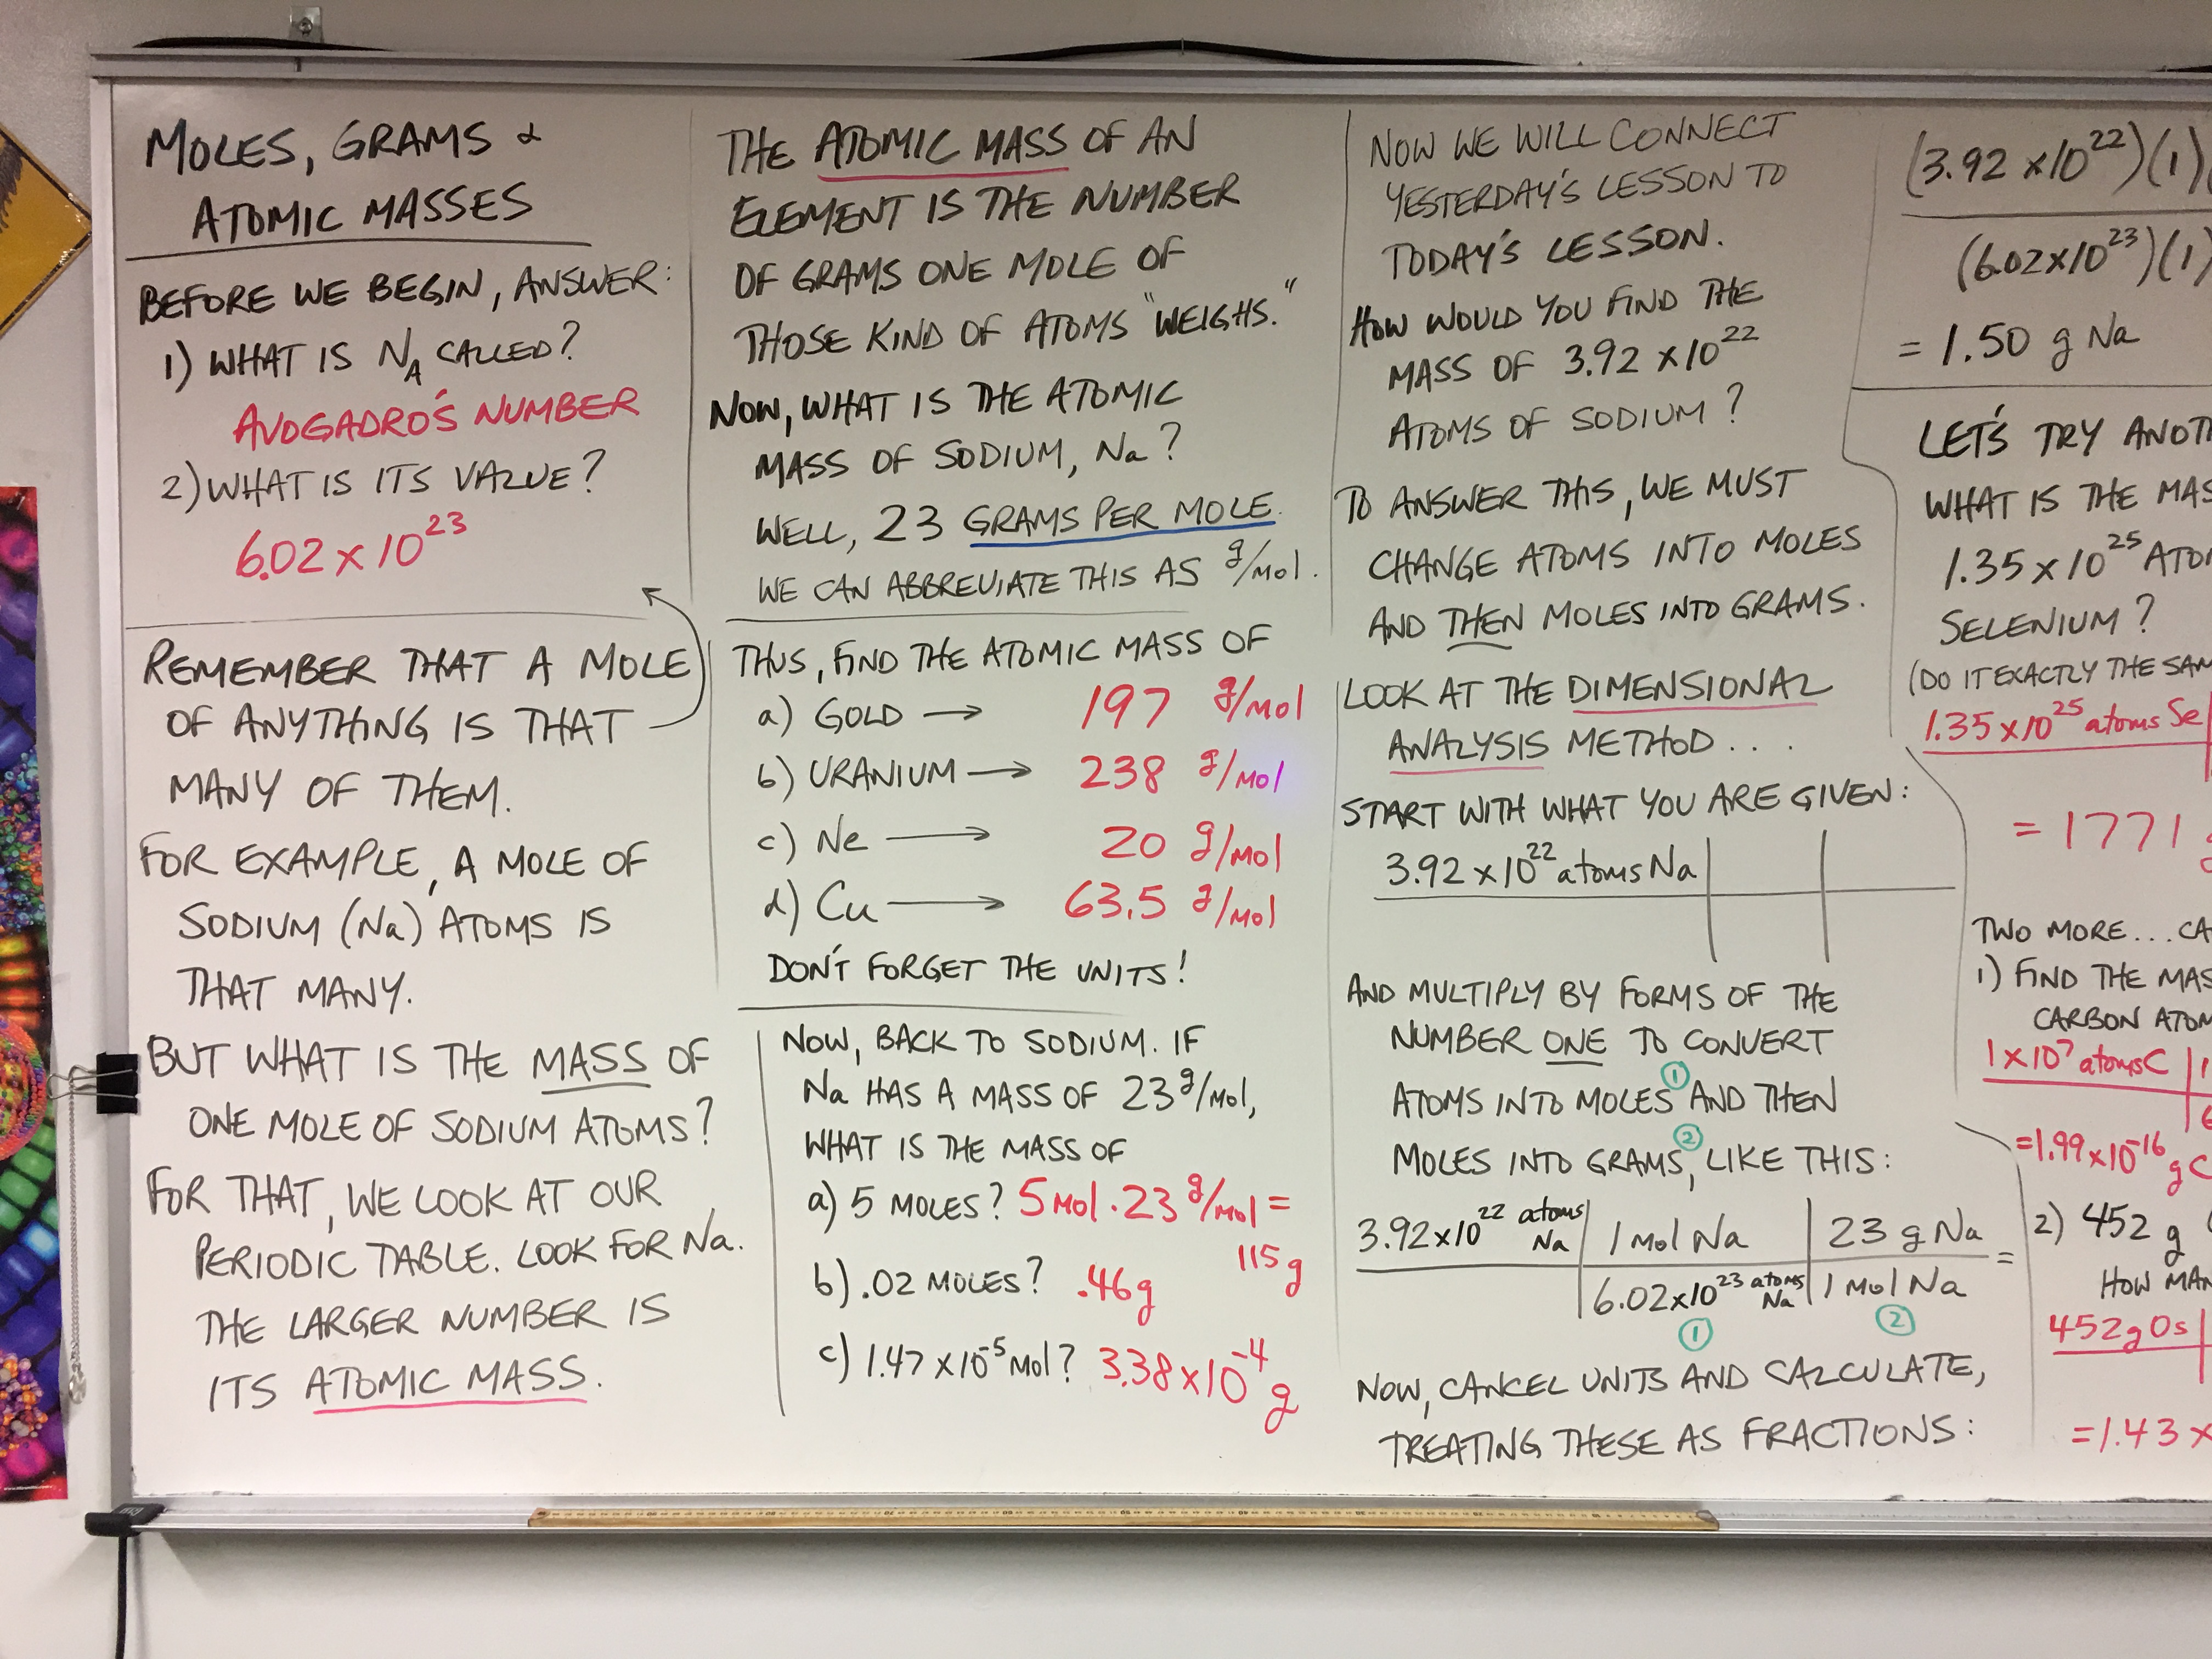 MOLES, GRAMS &
ATOMIC MASSES
BEFORE WE BEGIN, ANSWER:
1) WHAT IS NA CALLED?
AVOGADRO'S NUMBER
2) WHAT IS ITS VALUE?
6.02 x 10^23
REMEMBER THAT A MOLE
OF ANYTHING IS THAT
MANY OF THEM.
FOR EXAMPLE, A MOLE OF
SODIUM (Na) ATOMS IS
THAT MANY.
BUT WHAT IS THE MASS OF
ONE MOLE OF SODIUM ATOMS?
FOR THAT, WE LOOK AT OUR
PERIODIC TABLE. LOOK FOR Na.
THE LARGER NUMBER IS
ITS ATOMIC MASS.
THE ATOMIC MASS OF AN
ELEMENT IS THE NUMBER
OF GRAMS ONE MOLE OF
THOSE KIND OF ATOMS "WEIGHS."
NOW, WHAT IS THE ATOMIC
MASS OF SODIUM, Na?
WELL, 23 GRAMS PER MOLE.
WE CAN ABBREVIATE THIS AS g/mol.
THUS, FIND THE ATOMIC MASS OF
a) GOLD → 197 g/mol
b) URANIUM → 238 g/mol
c) Ne → 20 g/mol
d) Cu → 63.5 g/mol
DON'T FORGET THE UNITS!
NOW, BACK TO SODIUM. IF
Na HAS A MASS OF 23 g/mol,
WHAT IS THE MASS OF
a) 5 MOLES? 5 mol · 23 g/mol =
115 g
b) .02 MOLES? .46g
c) 1.47 x 10^-5 mol? 3.38 x 10^-4 g
NOW WE WILL CONNECT
YESTERDAY'S LESSON TO
TODAY'S LESSON.
HOW WOULD YOU FIND THE
MASS OF 3.92 x 10^22
ATOMS OF SODIUM?
TO ANSWER THIS, WE MUST
CHANGE ATOMS INTO MOLES
AND THEN MOLES INTO GRAMS.
LOOK AT THE DIMENSIONAL
ANALYSIS METHOD....
START WITH WHAT YOU ARE GIVEN:
3.92 x 10^22 atoms Na
AND MULTIPLY BY FORMS OF THE
NUMBER ONE TO CONVERT
ATOMS INTO MOLES ① AND THEN
MOLES INTO GRAMS ②, LIKE THIS:
3.92 x 10^22 atoms Na | 1 mol Na | 23 g Na =
6.02 x 10^23 atoms Na | 1 mol Na
① ②
NOW, CANCEL UNITS AND CALCULATE,
TREATING THESE AS FRACTIONS:
(3.92 x 10^22)(1)
(6.02 x 10^23)(1)
= 1.50 g Na
LET'S TRY
WHAT IS THE
1.35 x 10^25
SELENIUM?
(DO IT EXACTLY THE
1.35 x 10^25 atoms Se
= 1771
TWO MORE...
1) FIND THE
CARBON
1 x 10^7 atoms C
= 1.99 x 10^-16 g C
2) 452 g
HOW
452 g Os
= 1.43 x